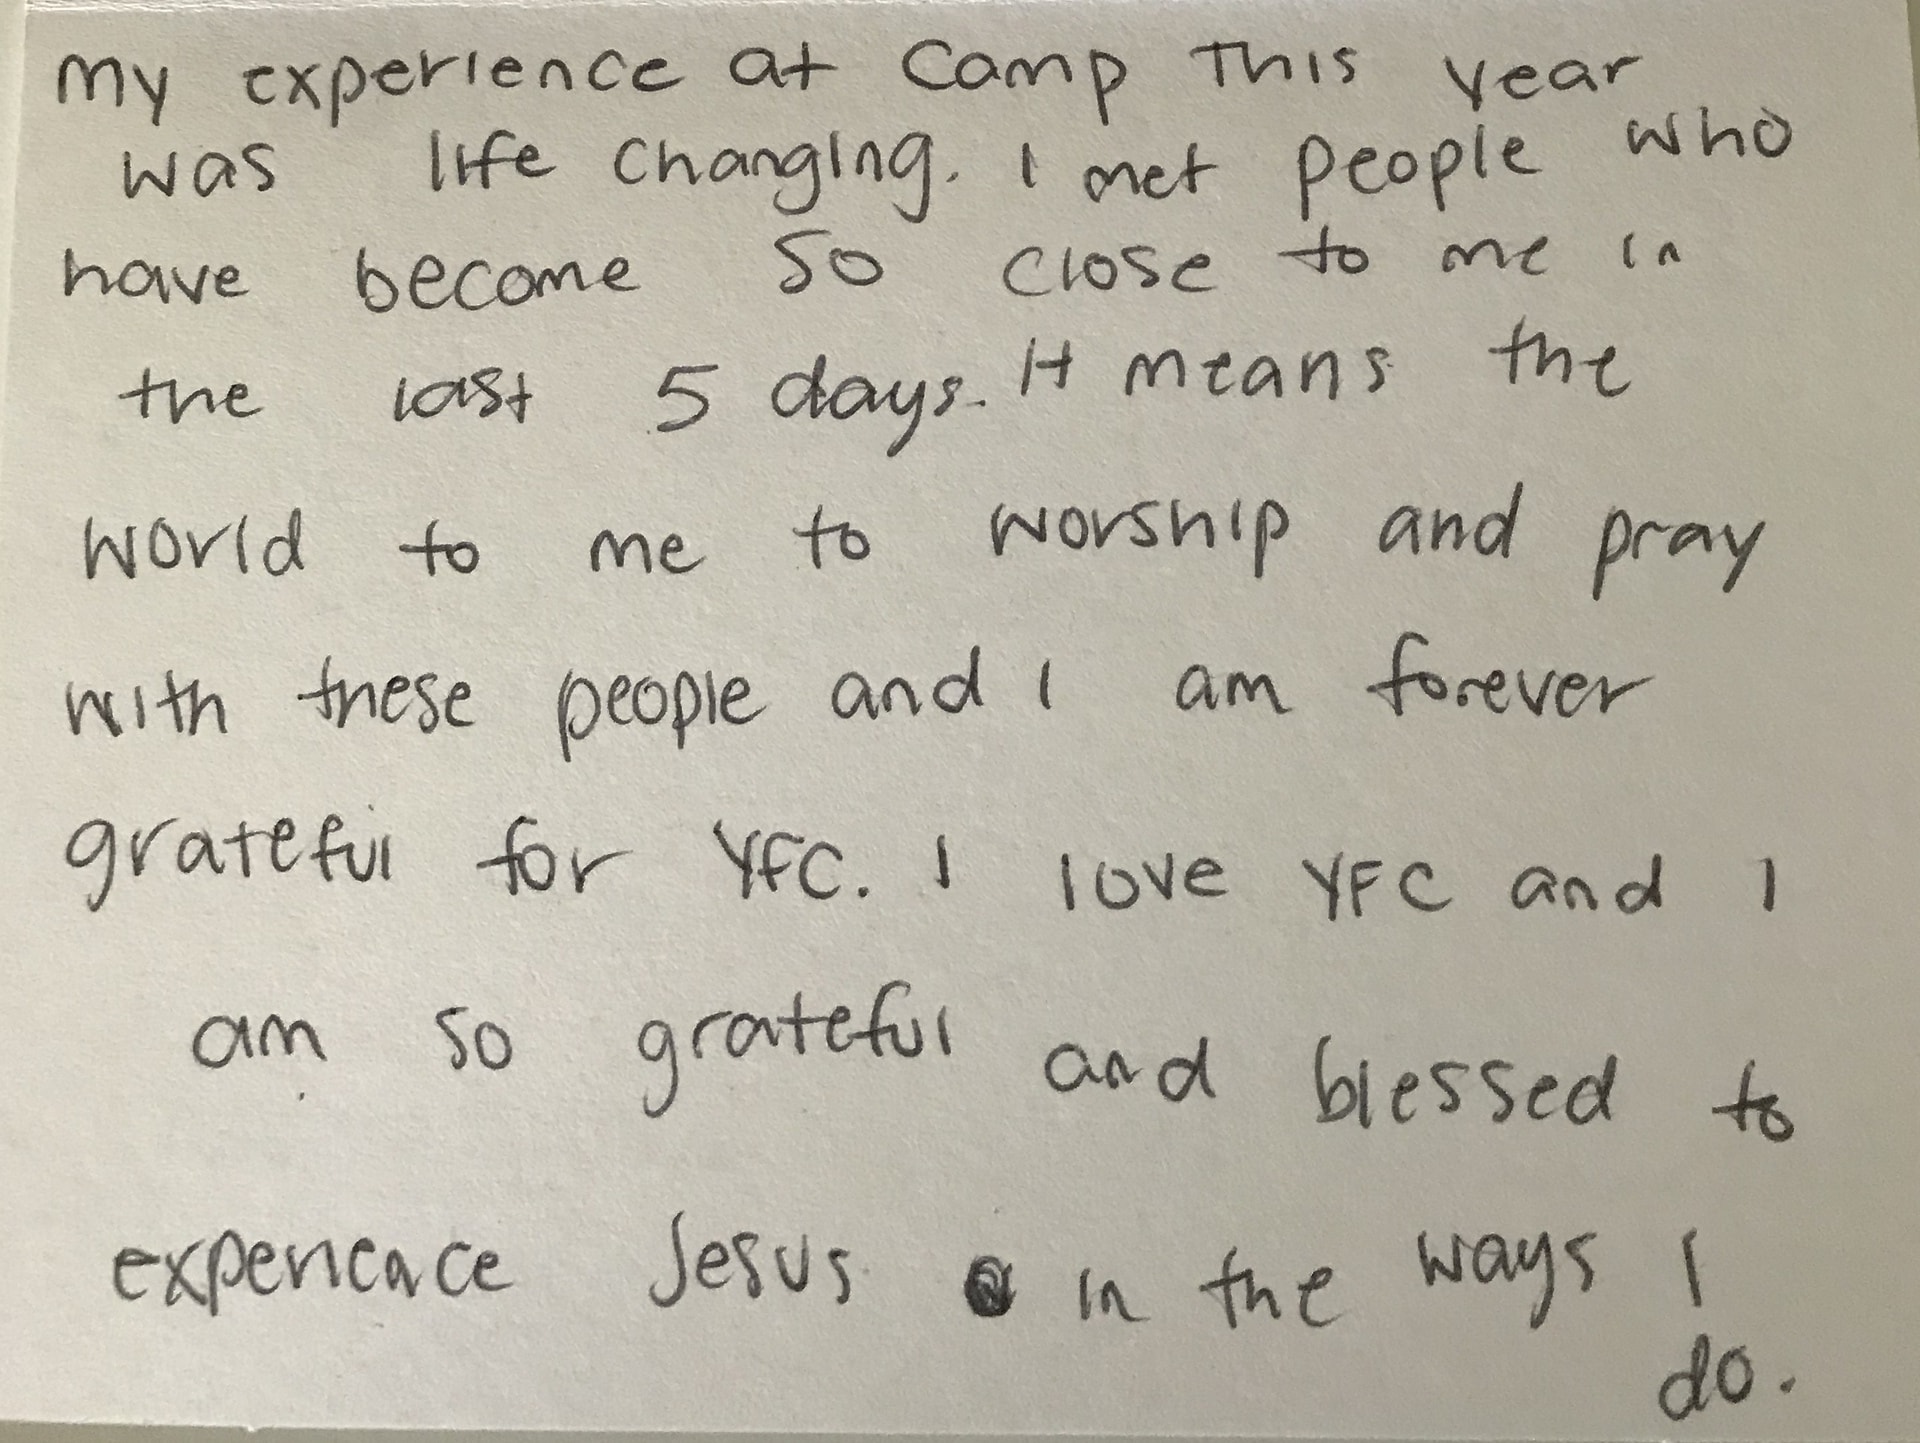 my experience at camp This year
was life changing. I met people who
have become so close to me in
the last 5 days. It means the
world to me to worship and pray
with these people and I am forever
grateful for YFC. I love YFC and I
am so grateful and blessed to
experience Jesus in the ways I
do.